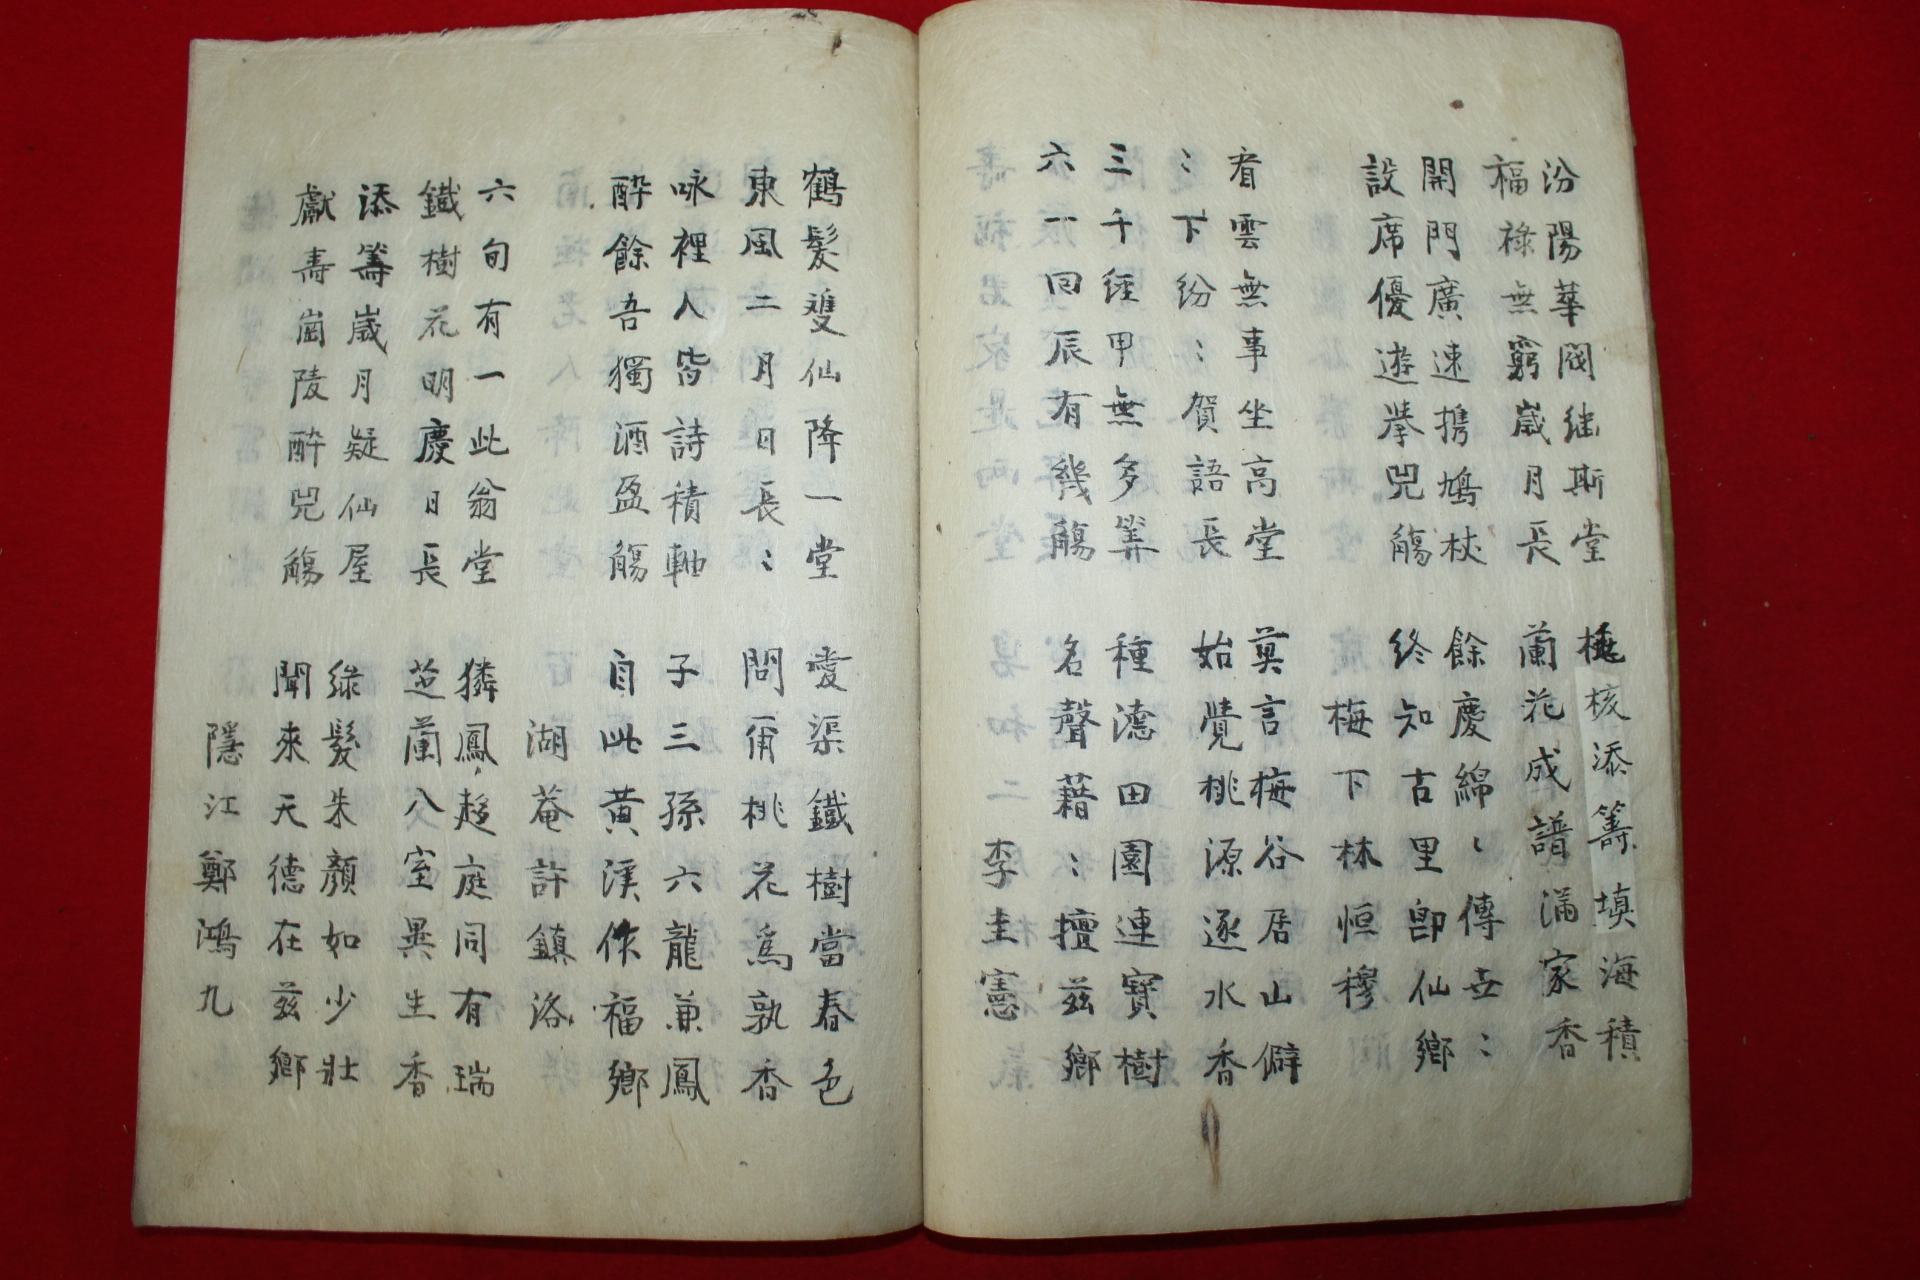 汾陽華閥継斯堂
福祿無窮歲月長
核添籌填海積
蘭花成譜滿家香
開門廣速携鳩杖
設席優遊擧兕觴
餘慶綿〻傳世〻
終知古里卽仙鄉
梅下林恒穆
看雲無事坐高堂
〻下紛〻賀語長
莫言梅谷居山僻
始覺桃源逐水香
三千経甲無多筭
六一回辰有幾觴
種德田園連寶樹
名聲藉〻擅玆鄉
李圭憲
鶴髮雙仙降一堂
東風二月日長〻
愛渠鐵樹當春色
問甭桃花爲孰香
咏裡人皆詩積軸
醉餘吾獨酒盈觴
子三孫六龍兼鳳
自此黃溪作福鄉
湖菴許鎮洛
六旬有一此翁堂
鐵樹花明慶日長
獜鳳趍庭同有瑞
芝蘭入室異生香
添籌歲月疑仙屋
獻壽崗陵醉兕觴
綠髮朱顏如少壯
聞來天德在玆鄉
隱江鄭鴻九